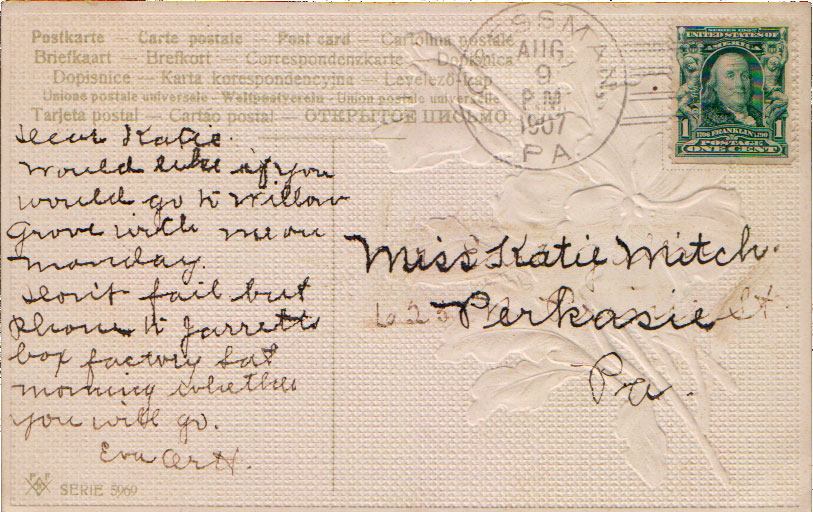 Postkarte — Carte postale — Post card — Cartolina postale
Briefkaart — Brefkort — Correspondenzkarte — Dopisnica
Dopisnice — Karta korespondencyjna — Levelező-lap
Unione postale universale — Weltpostverein — Union postale universelle
Tarjeta postal — Cartão postal — ОТКРЫТОЕ ПИСЬМО
SSMAN
AUG
9
P.M.
1907
PA.
SERIES 1902
UNITED STATES OF
AMERICA
1 1
1706 FRANKLIN 1790
POSTAGE
ONE CENT
Dear Katie.
Would like if you
would go to Willow
Grove with me on
Monday.
Don't fail but
Phone to Jarretts
box factory Sat
morning whether
you will go.
Eva
Miss Katie Mitch.
Perkasie
Pa.
SERIE 5969